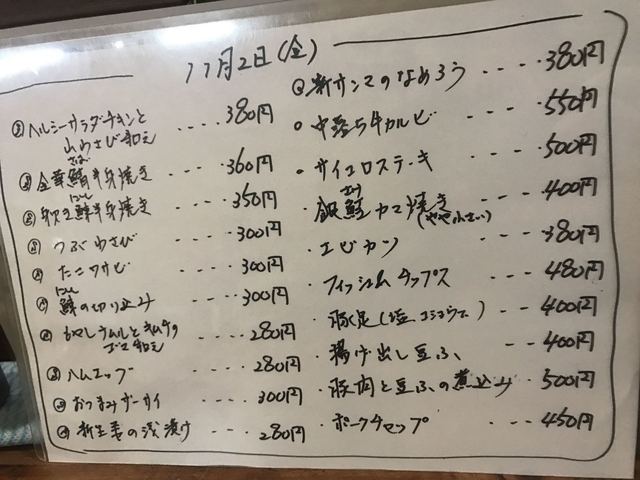 11月2日(金)
ヘルシーサラダチキンと
山わさび和え ････ 380円
さば
金華鯖半身焼き ････ 360円
にしん
鰊半身焼き ････ 350円
つぶわさび ････ 300円
たこワサビ ････ 300円
にしん
鰊の切り込み ････ 300円
もやしナムルとキムチの
ゴマ和え ････ 280円
ハムエッグ ････ 280円
おつまみザーサイ ････ 300円
新生姜の浅漬け ････ 280円
新サンマのなめろう ････ 380円
中落ち牛カルビ ････ 550円
サイコロステーキ ････ 500円
銀鮭カマ焼き ････ 400円
(やや小さい)
エビカツ ････ 380円
フィッシュ&チップス ････ 480円
豚足(塩コショウ) ････ 400円
揚げ出し豆ふ ････ 400円
豚肉と豆ふの煮込み 500円
ポークチャップ ････ 450円